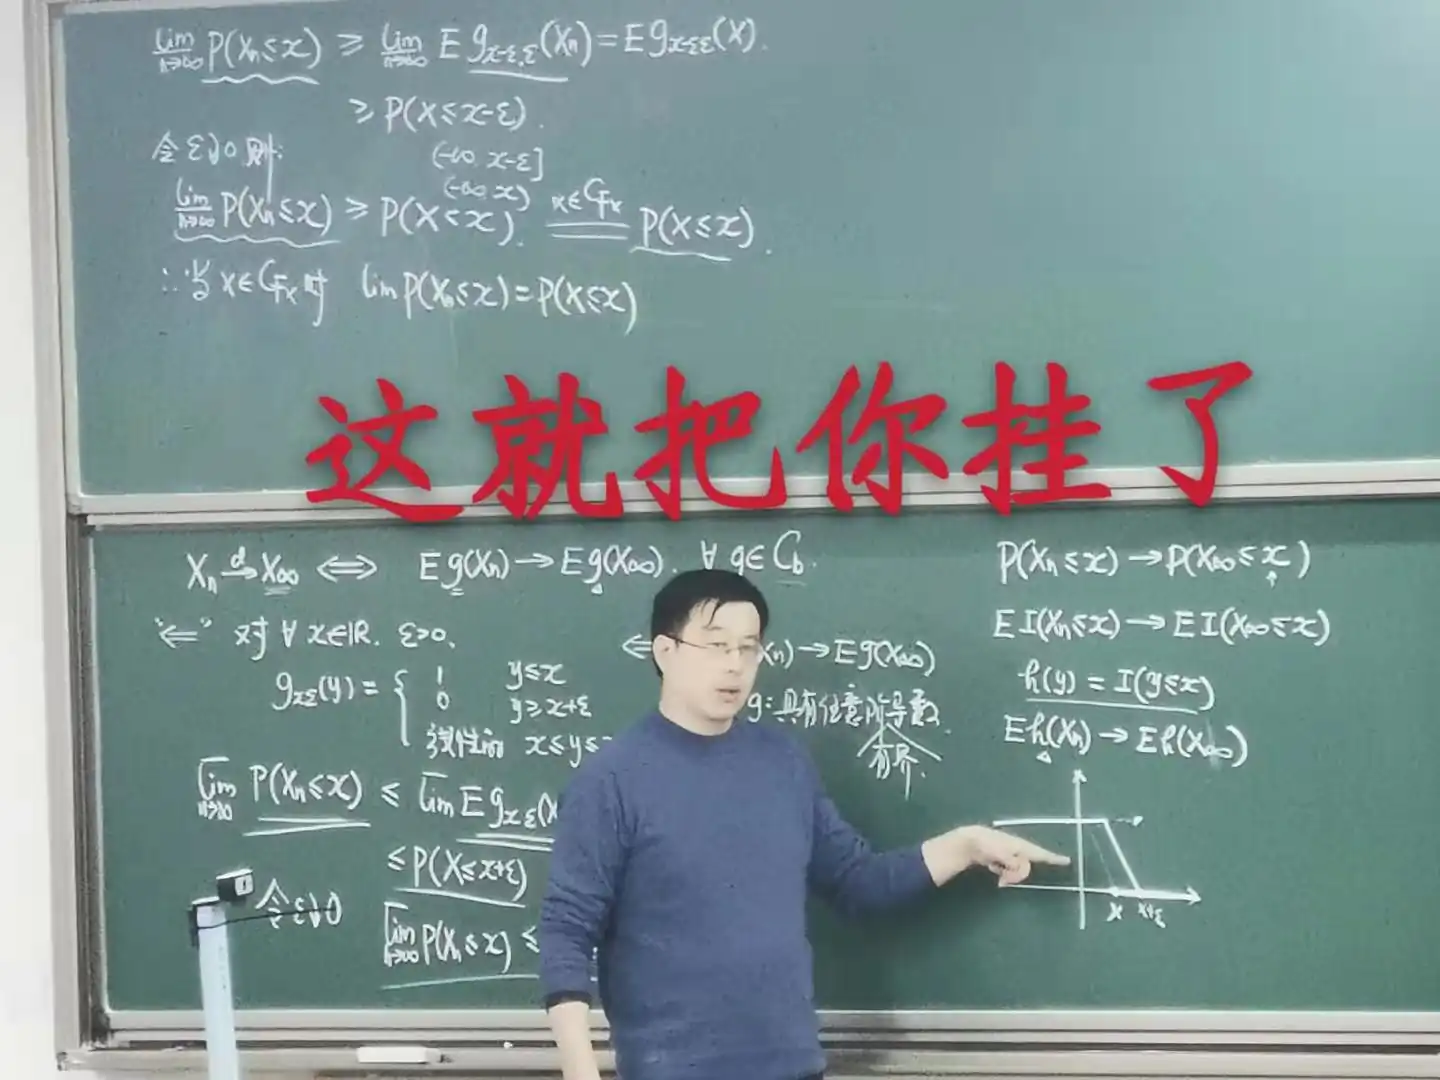 lim n→∞ P(Xn≤x) ≥ lim n→∞ E g_{x-ε,ε}(Xn) = E g_{x-ε,ε}(X).
≥ P(X≤x-ε).
令 ε↓0 则:
(-∞, x-ε]
(-∞, x)
lim n→∞ P(Xn≤x) ≥ P(X<x). x∈C_{Fx} P(X≤x).
∴ 当 x∈C_{Fx} 时 lim P(Xn≤x) = P(X≤x)
这就把你挂了
Xn →d X∞ ⟺ E g(Xn) → E g(X∞). ∀ g∈C_b.
"⇐" 对 ∀ x∈ℝ. ε>0.
g_{xε}(y) = { 1 y≤x
0 y≥x+ε
线性的 x≤y≤
lim n→∞ P(Xn≤x) ≤ lim E g_{xε}(X
≤ P(X≤x+ε)
令 ε↓0
lim n→∞ P(Xn≤x) ≤
Xn) → E g(X∞)
g: 具有任意阶导数.
有界.
P(Xn≤x) → P(X∞≤x)
E I(Xn≤x) → E I(X∞≤x)
h(y) = I(y≤x)
E h(Xn) → E h(X∞)
x x+ε